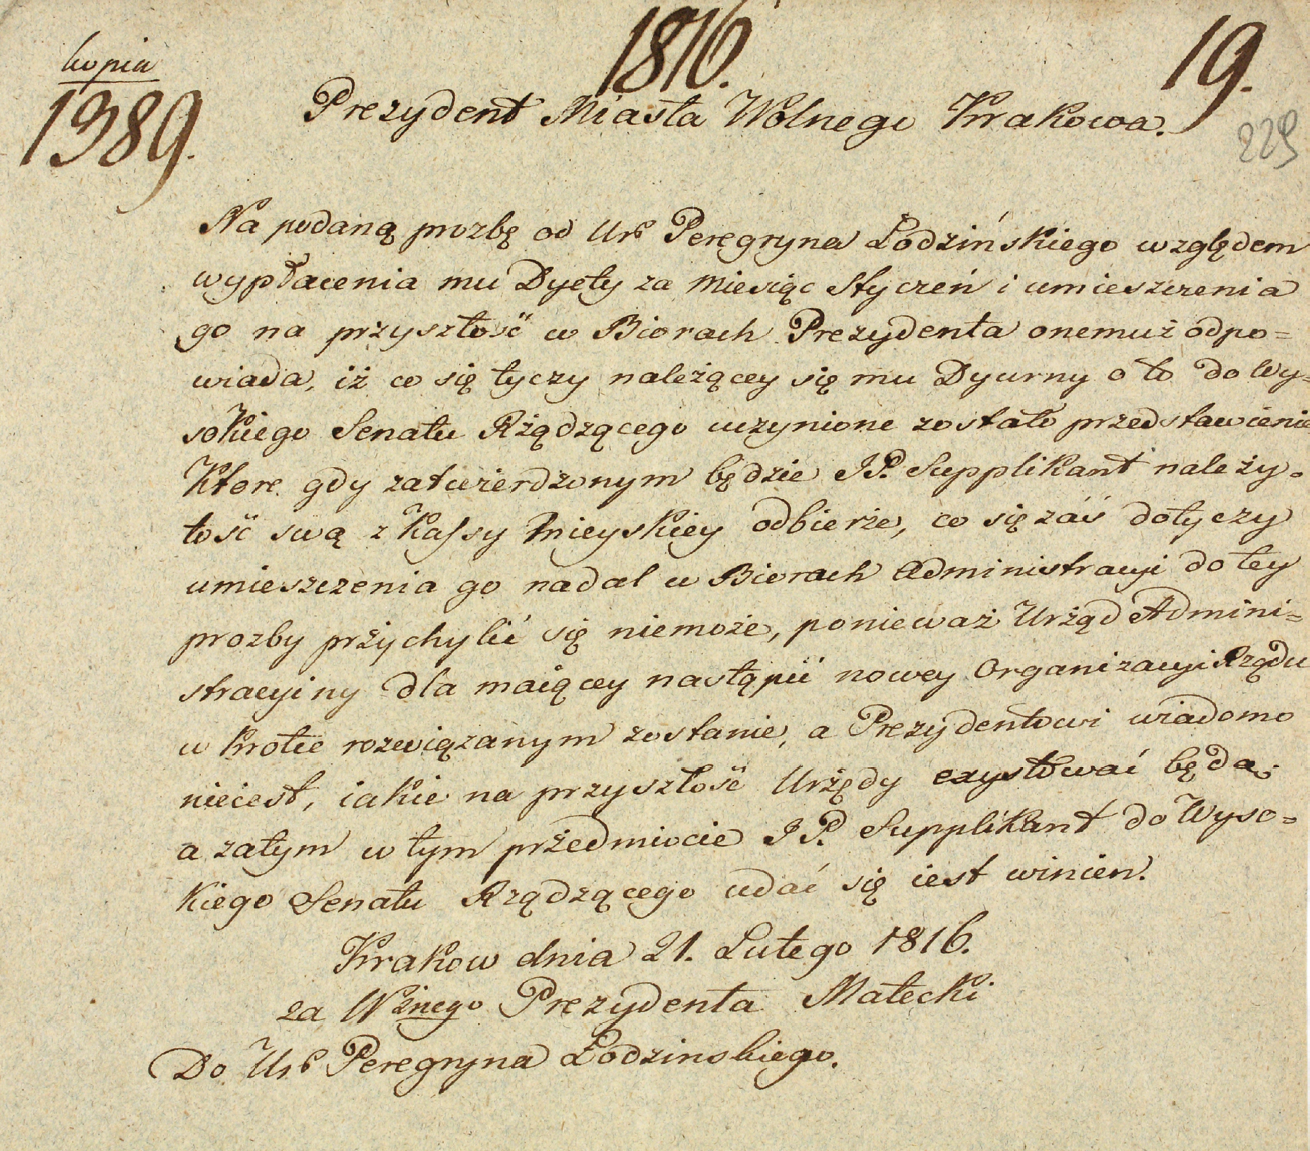 kopia
1816.
19.
1389.
Prezydent Miasta Wolnego Krakowa.
229
Na podaną prozbę od Ur. Peregryna Łodzińskiego względem
wypłacenia mu Dyety za Miesiąc Styczeń i umieszczenia
go na przyszłość w Biorach Prezydenta onemuż odpo=
wiada, iż co się tyczy należącey się mu Dyurny o to do Wy=
sokiego Senatu Rządzącego uczynione zostało przedstawienie
Ktore gdy zatwierdzonym będzie JP. Supplikant należy=
tość swą z Kassy Mieyskiey odbierze, co się záś dotyczy
umieszczenia go nadal w Biorach Administracyi do tey
prozby przychylić się niemoże, ponieważ Urząd Admini=
stracyiny dla maiącey nastąpić nowey Organizacyi Rządu
w krotce rozwiązanym zostanie, a Prezydentowi wiadomo
nieiest, iakie na przyszłość Urzędy exystować będą,
a zatym w tym przedmiocie JP. Supplikant do Wyso=
kiego Senatu Rządzącego udać się iest winien.
Krakow dnia 21. Lutego 1816.
za Wżnego Prezydenta Małecki
Do Ur. Peregryna Łodzinskiego.